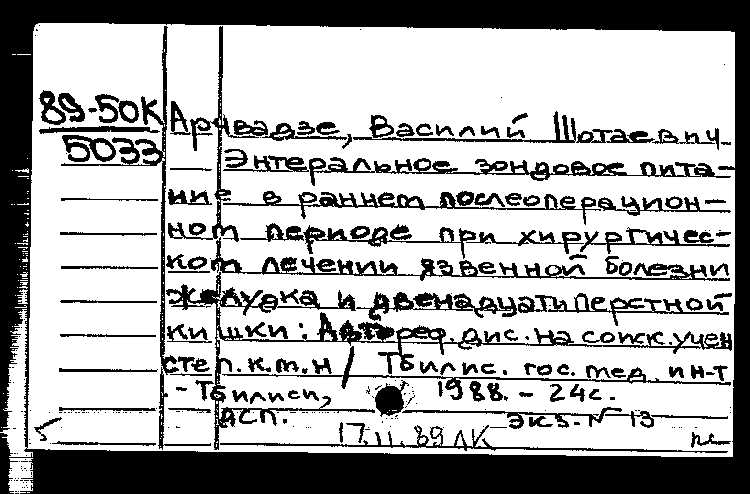 89-50К
5033
Арчвадзе, Василий Шотаевич
Энтеральное зондовое пита-
ние в раннем послеоперацион-
ном периоде при хирургичес-
ком лечении язвенной болезни
желудка и двенадцатиперстной
кишки: Автореф. дис. на соиск. учен
степ. к.м.н / Тбилис. гос. мед. ин-т
- Тбилиси, 1988. - 24с.
дсп. экз. № 13
5 17.11.89 ЛК